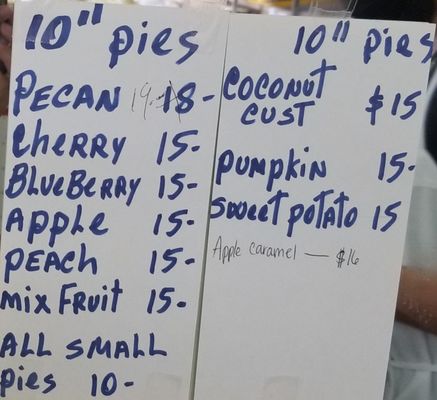 10" pies
PECAN 19- 18-
Cherry 15-
BlueBerry 15-
Apple 15-
peach 15-
mix Fruit 15-
ALL SMALL
pies 10-
10" pies
COCONUT
CUST $15
pumpkin 15-
sweet potato 15
Apple caramel — $16